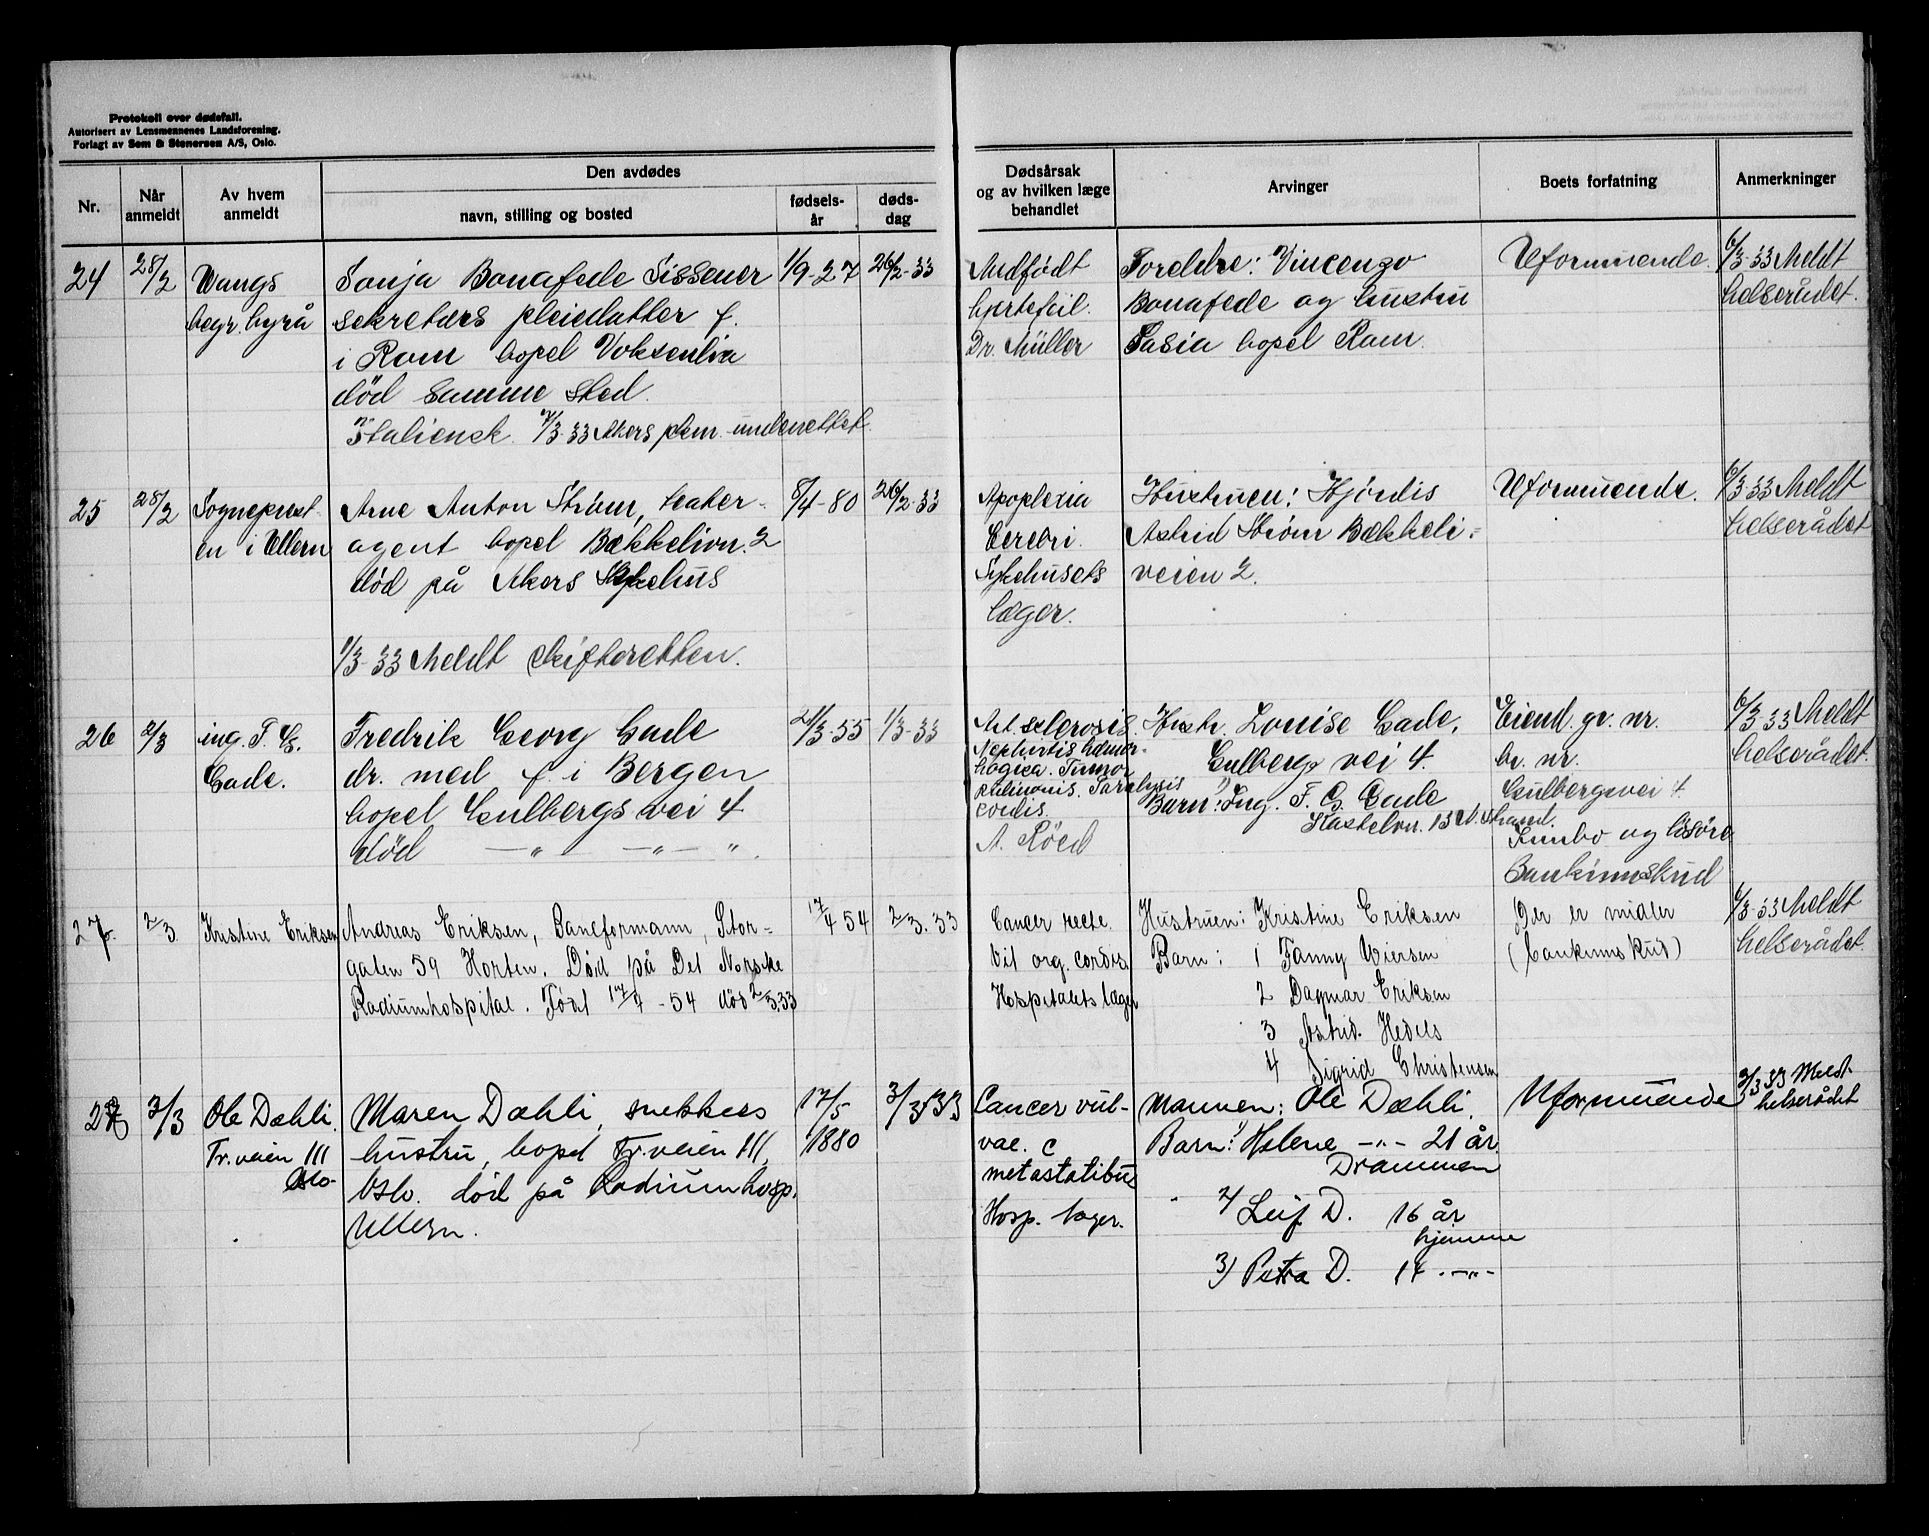 Protokoll over dødsfall.
Autorisert av Lensmennenes Landsforening.
Forlagt av Sem & Stenersen A/S, Oslo.
Nr.
Når anmeldt
Av hvem anmeldt
Den avdødes
navn, stilling og bosted
fødsels-år
døds-dag
Dødsårsak og av hvilken læge behandlet
Arvinger
Boets forfatning
Anmerkninger
24
28/2
Wangs
begr. byrå
Sonja Bonafede Sissener
sekretærs pleiedatter f.
i Rom bopel Voksenlia
død samme sted.
Italiensk. 7/3-33 Akers underrettet.
1/9-27
26/2-33
Medfødt
hjertefeil.
Dr. Müller
Foreldre: Vincenzo
Bonafede og hustru
bopel Rom.
Uformuende.
6/3-33 Meldt
helserådet.
25
28/2
Sogneprest-
en i Ullern
Arne Anton Strøm, teater-
agent bopel Bækkelivn. 2
død på Akers Sykehus
1/3-33 Meldt skifteretten.
8/4-80
26/2-33
Apoplexia
Cerebri.
Sykehusets
læger.
Hustruen: Hjørdis
Astrid Strøm Bækkeli-
veien 2.
Uformuende.
6/3-33 Meldt
helserådet
26
2/3
ing. F. G.
Gade.
Fredrik Georg Gade
dr. med f. i Bergen
bopel Gulbergs vei 4
død —"— —"— ".
21/3-55
1/3-33
Art. sclerosis.
Nephritis hæmor-
hagica. Tumor
pulmonis. Paralysis
cordis.
A. Røed
Hustr. Louise Gade,
Gulbergs vei 4.
Barn: 1) Ing. F. G. Gade
Kastelvn. 13 N. Strand.
Eiend. gr. nr.
br. nr.
Gulbergsvei 4
Innbo og løsøre
Bankinnskud
6/3-33 Meldt
helserådet.
27.
2/3
Kristine Eriksen
Andreas Eriksen, Baneformann, Stor-
gaten 59 Horten. Død på Det Norske
Radiumhospital. Født 17/4-54 død 2/3.33
17/4 54
2/3.33
Cancer recte.
Vit. org. cordis
Hospitalets læger
Hustruen: Kristine Eriksen
Barn: 1 Fanny Wiersen
2 Dagmar Eriksen
3 Astrid Hedels
4 Sigrid Christensen
Der er midler
(bankinnskud)
6/3-33 Meldt
helserådet.
28
3/3
Ole Dæhli.
Tr.veien 111
Oslo-
Maren Dæhli, snekkers
hustru, bopel Tr.veien 111,
Oslo. død på Radiumhosp.
Ullern.
17/5
1880
3/3 33
Cancer vul-
vae. c
metastatibus
Hosp. læger.
Mannen: Ole Dæhli.
Barn: 1) Helene —"— 21 år.
Drammen
2) Leif D. 16 år
hjemme
3) Petra D. 14 —"—
Uformuende
3/3 33 Meldt
helserådet